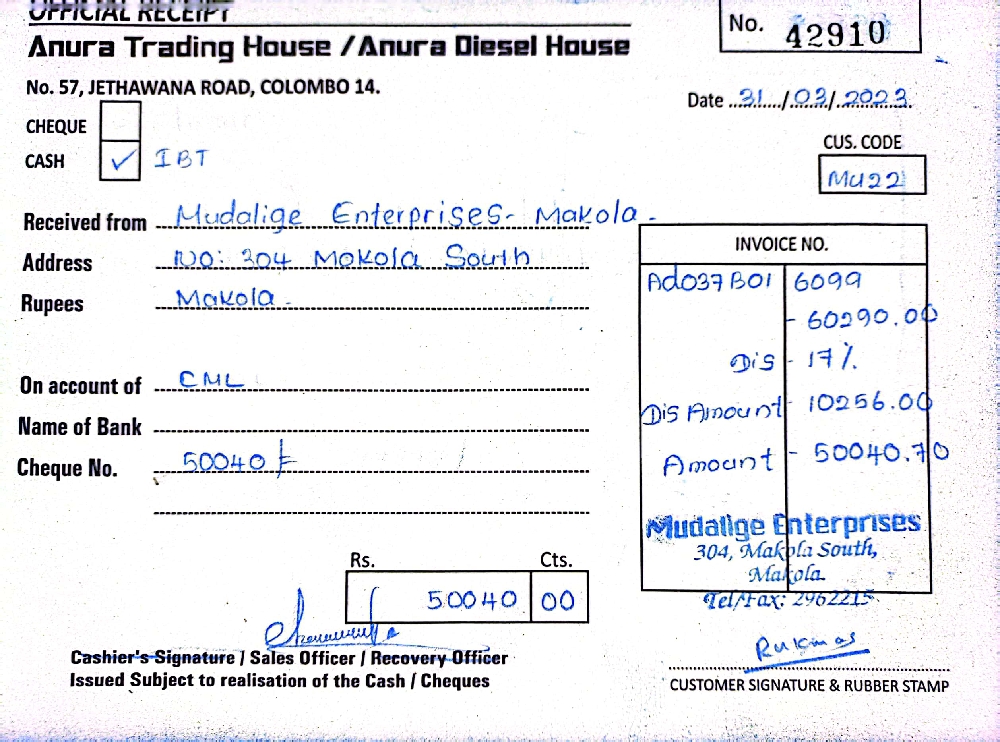 OFFICIAL RECEIPT
No. 42910
Anura Trading House / Anura Diesel House
No. 57, JETHAWANA ROAD, COLOMBO 14.
Date 31/03/2023
CHEQUE
CASH ✓ IBT
CUS. CODE
MU22
Received from Mudalige Enterprises- Makola-
Address NO: 304 Makola South
Rupees Makola-
On account of CML
Name of Bank
Cheque No. 50040/=
INVOICE NO.
Ad037B01 6099
- 60290.00
Dis - 17%
Dis Amount - 10256.00
Amount - 50040.70
Mudalige Enterprises
304, Makola South,
Makola.
Tel/Fax: 2962215
Rs. Cts.
50040 00
Cashier's Signature / Sales Officer / Recovery Officer
Issued Subject to realisation of the Cash / Cheques
CUSTOMER SIGNATURE & RUBBER STAMP